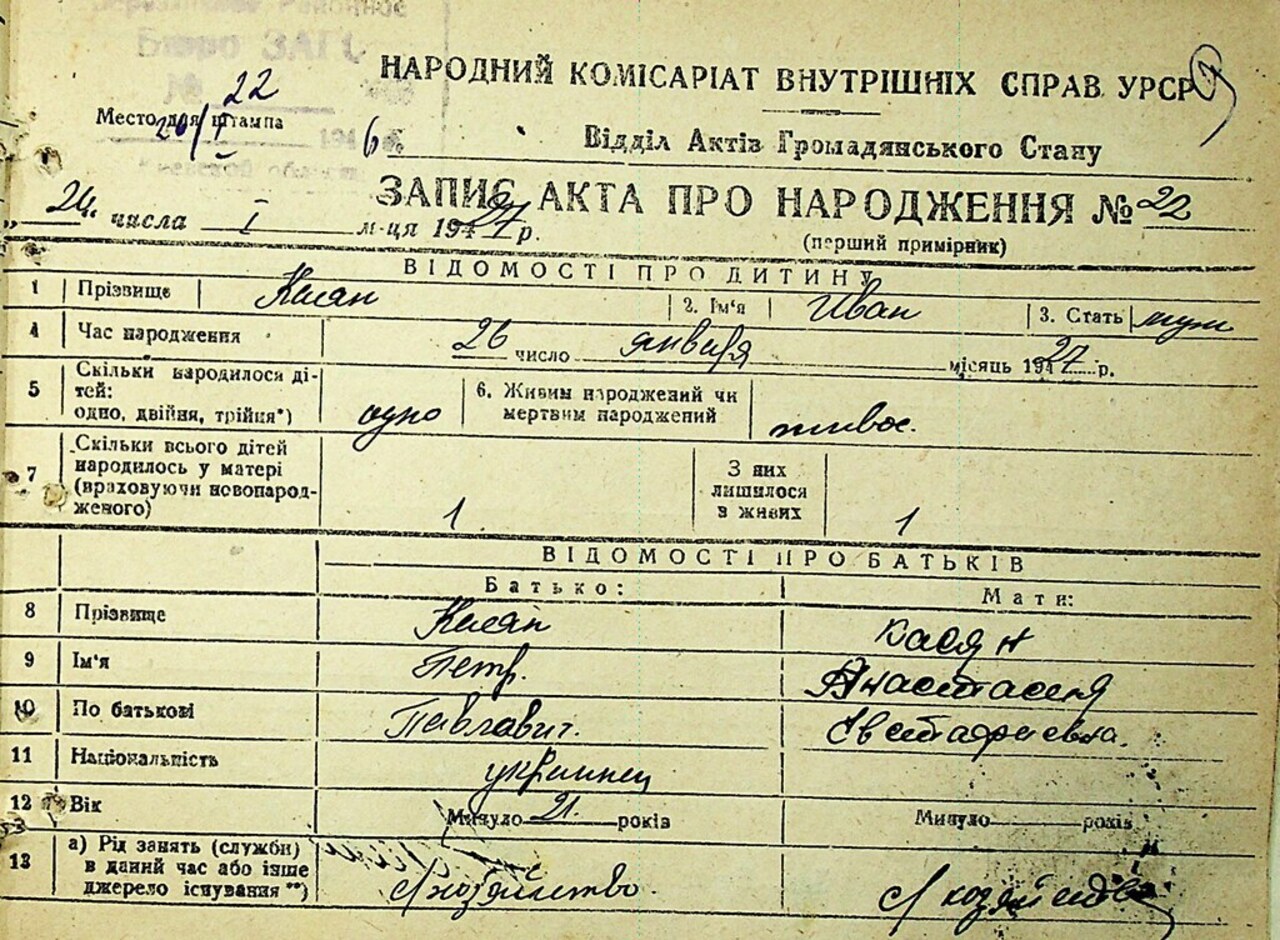 Районное
Бюро ЗАГС
№ 22
Место для штампа
20/I 194 6
області
НАРОДНИЙ КОМІСАРІАТ ВНУТРІШНІХ СПРАВ УРСР
Відділ Актів Громадянського Стану
ЗАПИС АКТА ПРО НАРОДЖЕННЯ № 22
числа I м-ця 1927 р.
(перший примірник)
ВІДОМОСТІ ПРО ДИТИНУ
1 Прізвище Касян 2. Ім'я Иван 3. Стать муж
4 Час народження 26 число января місяць 1927 р.
5 Скільки народилося ді-
тей:
одно, двійня, трійня*) одно 6. Живим народжений чи
мертвим народжений живое.
7 Скільки всього дітей
народилось у матері
(враховуючи новонарод-
женого) 1 З них
лишилося
в живих 1
ВІДОМОСТІ ПРО БАТЬКІВ
Батько: Мати:
8 Прізвище Касян Касян
9 Ім'я Петр. Анастасия
10 По батькові Павлович. Евстафиевна.
11 Національність украинец
12 Вік Минуло 21. років Минуло років
13 а) Рід занять (служби)
в даний час або інше
джерело існування**) с/хозяйство. с/хозяйство